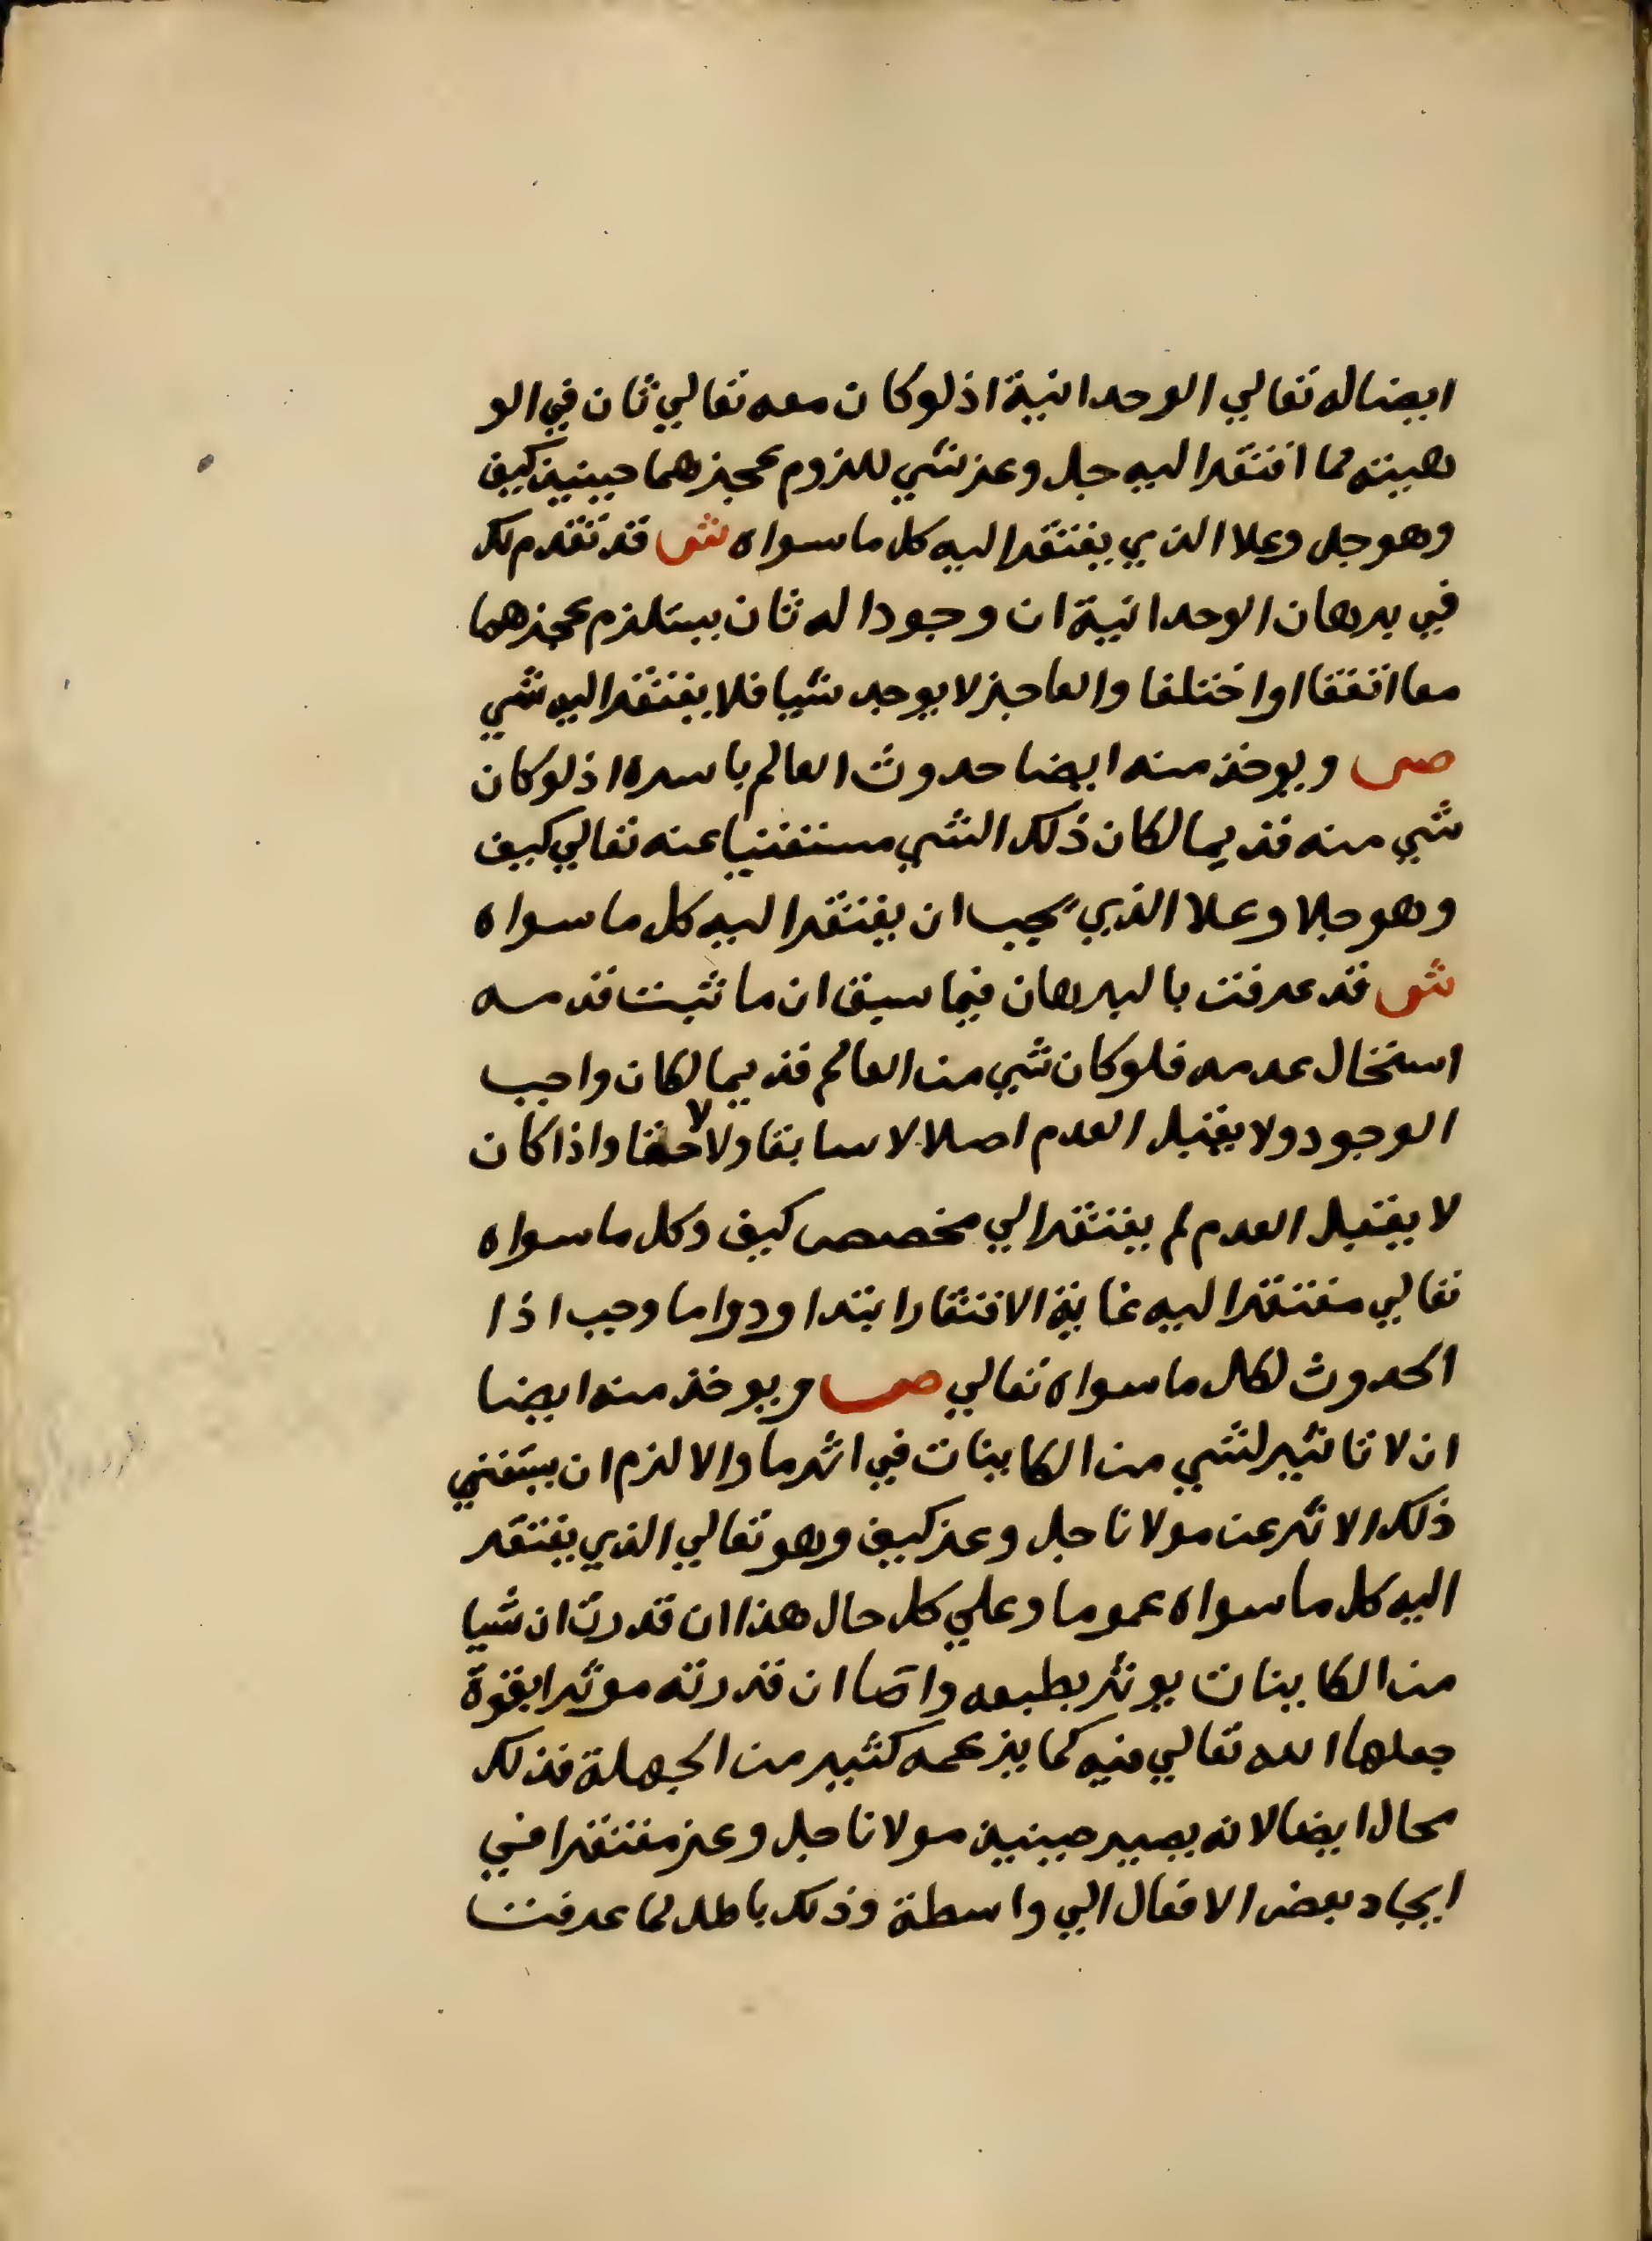 ايضا له تعالي الوحدانية اذ لو كان معه تعالي ثان في الو
هيته لما افتقر اليه جل وعز شي للزوم عجزهما حينيذ كيف
وهو جل وعلا الذي يفتقر اليه كل ما سواه ش قد تقدم لك
في برهان الوحدانية ان وجود اله ثان يستلزم عجزهما
معا اتفقا او اختلفا والعاجز لا يوجد شيا فلا يفتقر اليه شي
ص ويوخذ منه ايضا حدوث العالم باسره اذ لو كان
شي منه قديما لكان ذلك الشي مستغنيا عنه تعالي كيف
وهو جلا وعلا الذي يجب ان يفتقر اليه كل ما سواه
ش قد عرفت بالبرهان فيما سبق ان ما ثبت قدمه
استحال عدمه فلو كان شي من العالم قديما لكان واجب
الوجود ولا يقبل العدم اصلا لا سابقا ولا لاحقا واذا كان
لا يقبل العدم لم يفتقر الي مخصص كيف وكل ما سواه
تعالي مفتقر اليه غاية الافتقار ابتدا ودواما وجب اذا
الحدوث لكل ما سواه تعالي ص ويوخذ منه ايضا
ان لا تاثير لشي من الكاينات في اثر ما والا لزم ان يستغني
ذلك الاثر عن مولانا جل وعز كيف وهو تعالي الذي يفتقر
اليه كل ما سواه عموما وعلي كل حال هذا ان قدرت ان شيا
من الكاينات يوثر بطبعه واما ان قدرته موثرا بقوة
جعلها الله تعالي فيه كما يزعمه كثير من الجهلة فذلك
محال ايضا لانه يصير حينيذ مولانا جل وعز مفتقرا في
ايجاد بعض الافعال الي واسطة وذلك باطل لما عرفت